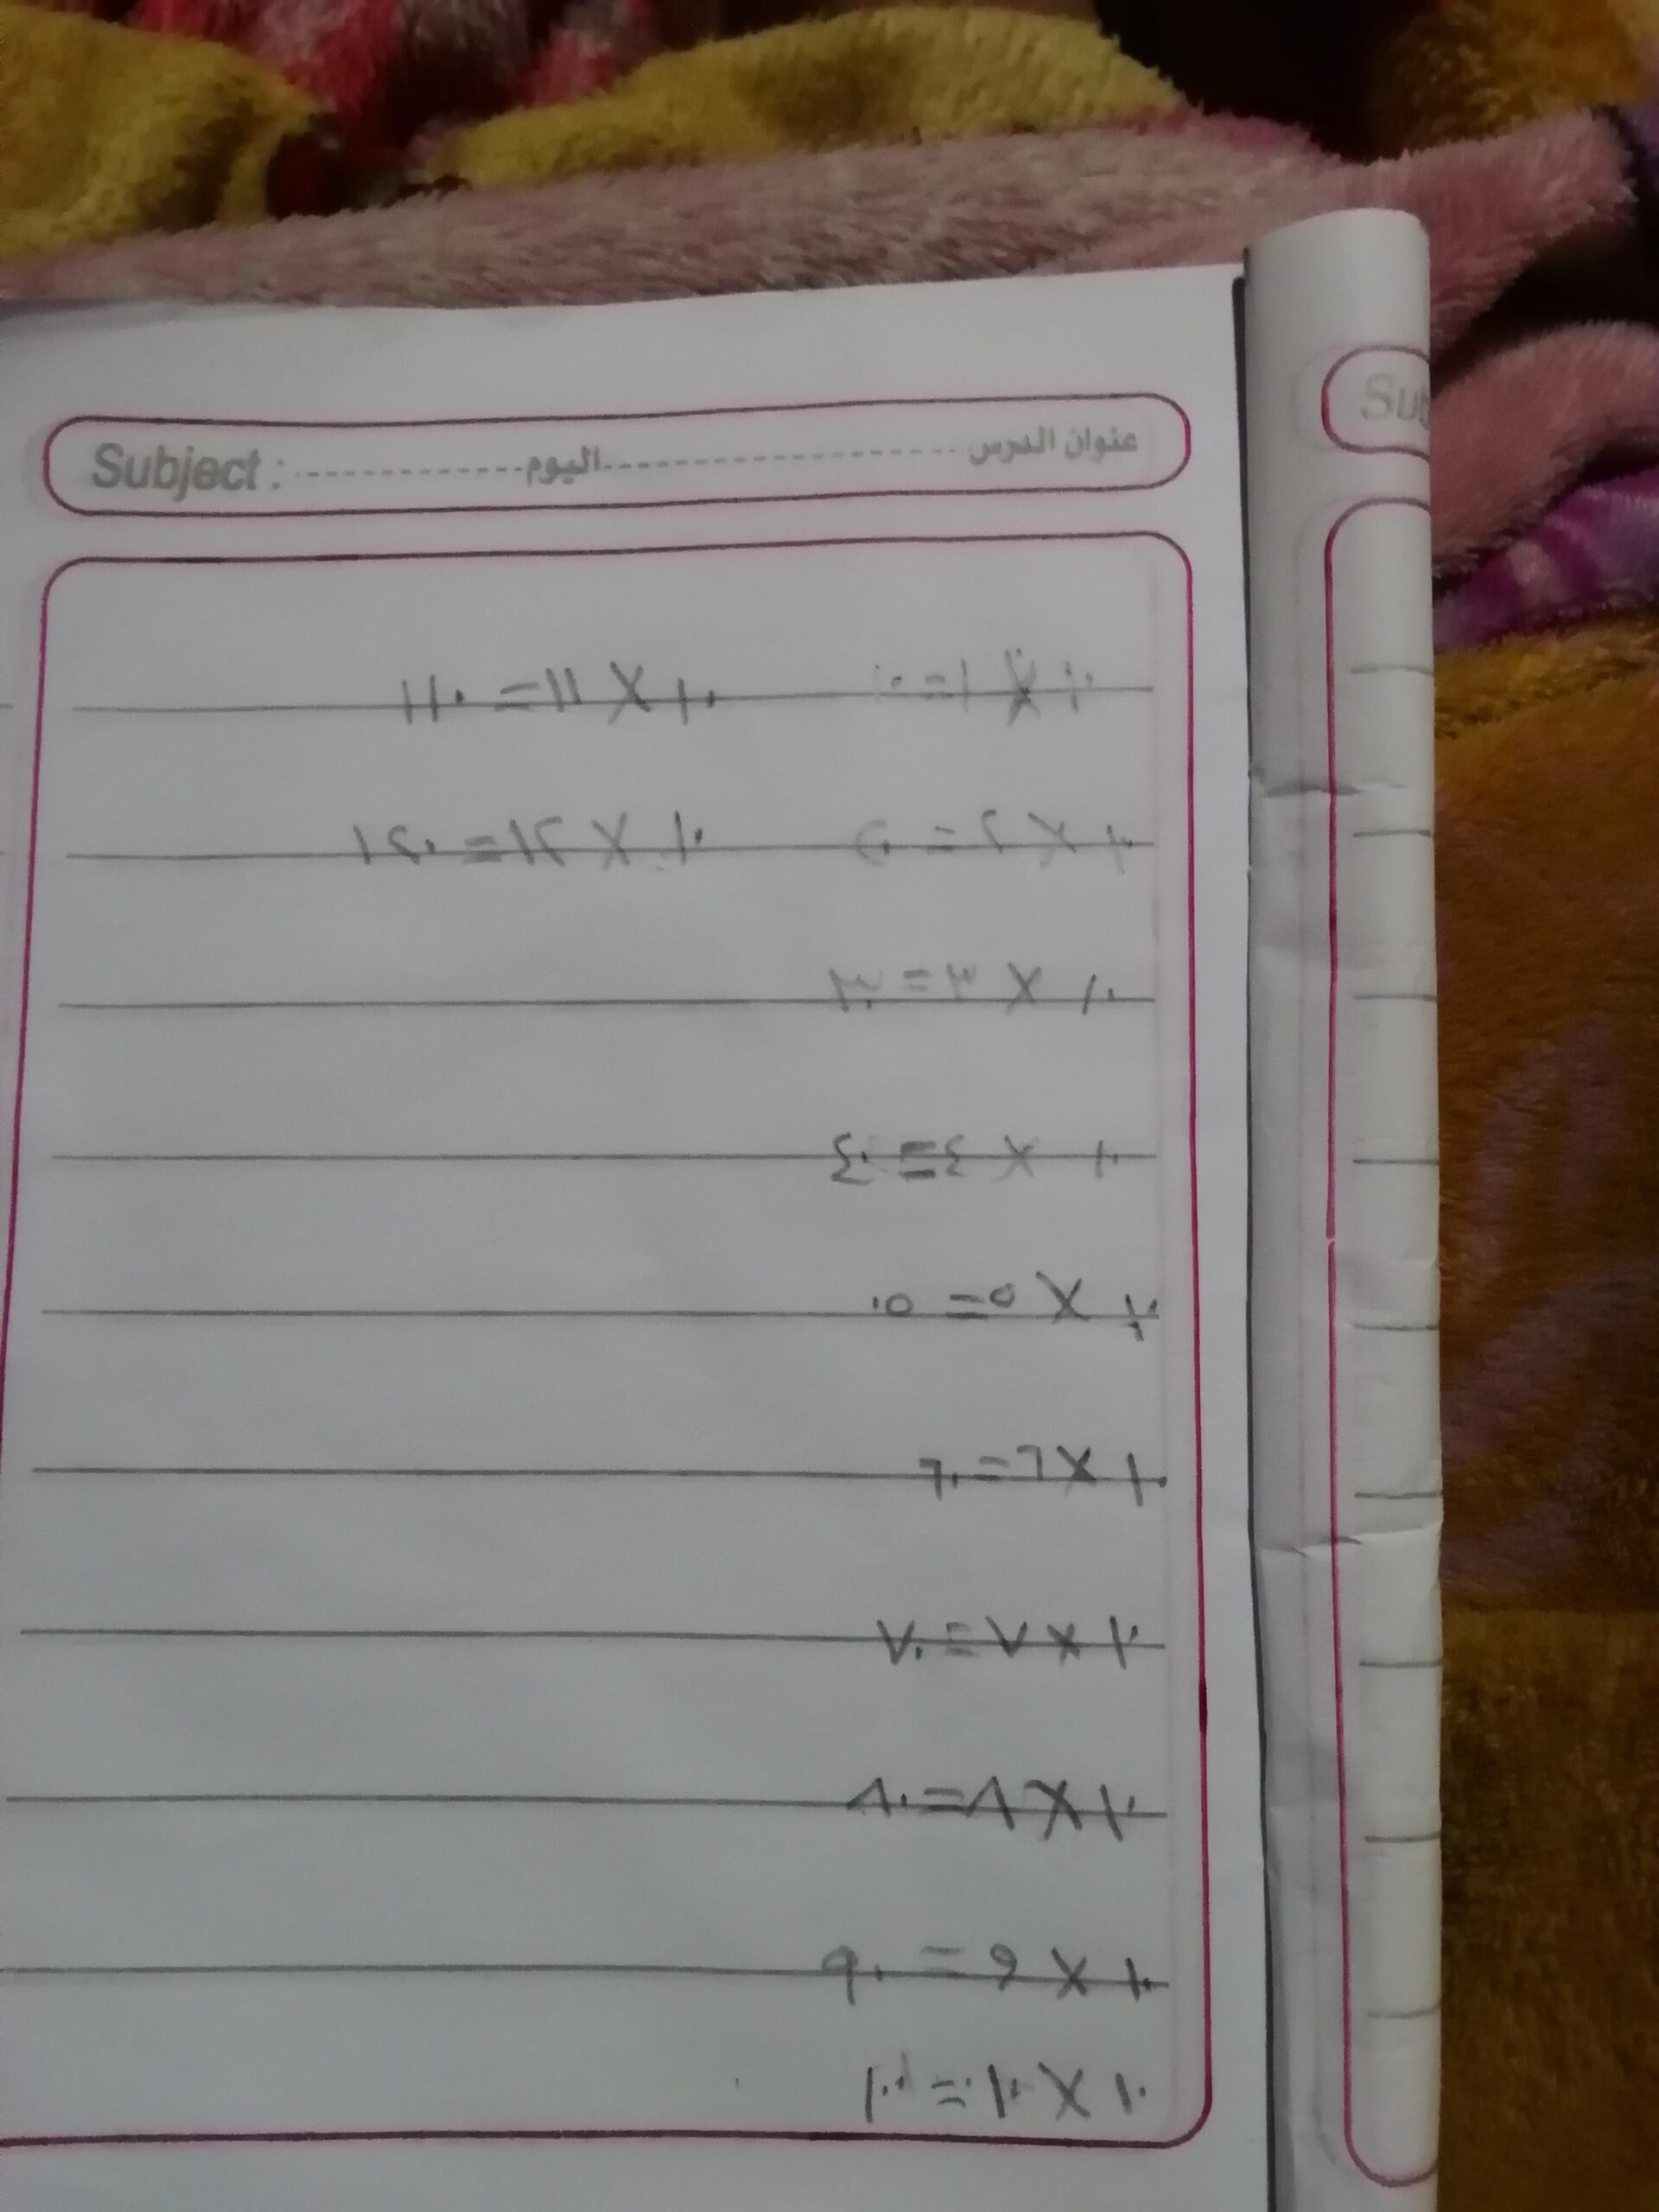 Subject : اليوم عنوان الدرس
١٠ × ١ = ١٠ ١٠ × ١١ = ١١٠
١٠ × ٢ = ٢٠ ١٠ × ١٢ = ١٢٠
١٠ × ٣ = ٣٠
١٠ × ٤ = ٤٠
١٠ × ٥ = ٠٥
١٠ × ٦ = ٦٠
١٠ × ٧ = ٧٠
١٠ × ٨ = ٨٠
١٠ × ٩ = ٩٠
١٠ × ١٠ =
Sub